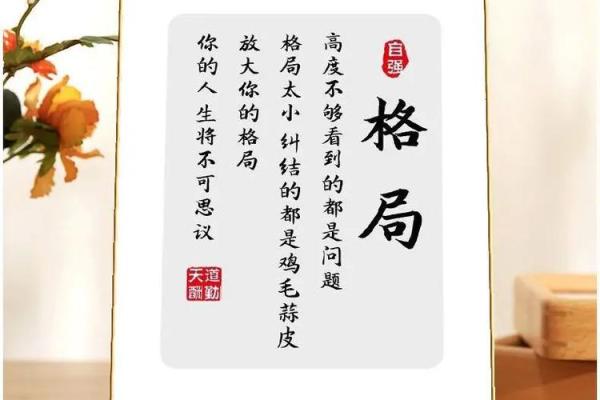 自强
格局
高度不够看到的都是问题
格局太小 纠结的都是鸡毛蒜皮
放大你的格局
你的人生将不可思议
天道酬勤